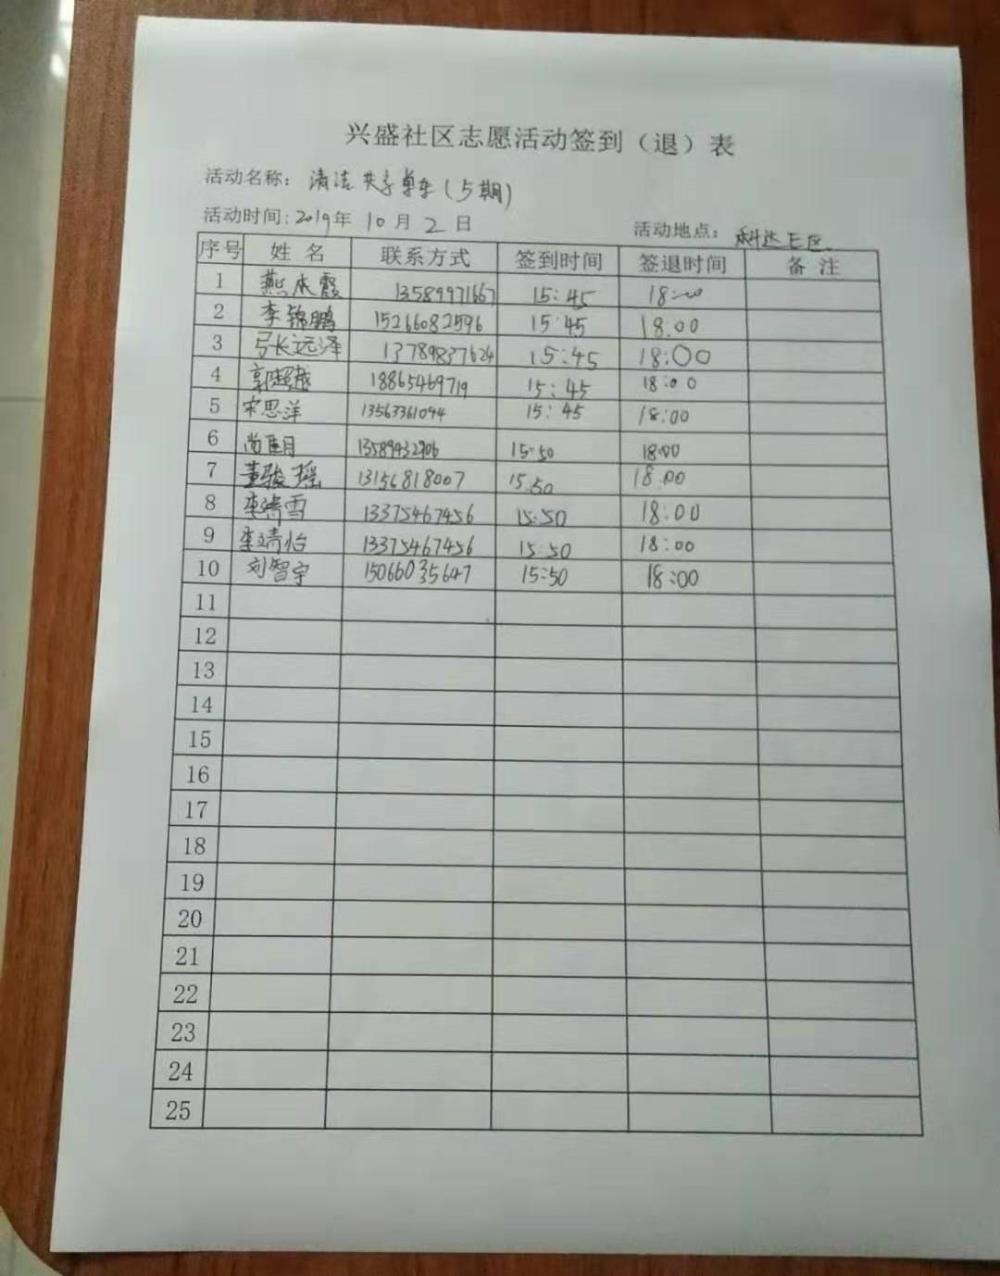 兴盛社区志愿活动签到（退）表
活动名称：清洁共享单车（5期）
活动时间：2019年10月2日 活动地点：科达E区
序号 姓名 联系方式 签到时间 签退时间 备注
1 燕本霞 13589971667 15:45 18:00
2 李锦鹏 15266082596 15:45 18:00
3 弓长远泽 13789837624 15:45 18:00
4 郭超越 18865469719 15:45 18:00
5 宋思洋 13563361094 15:45 18:00
6 13589932906 15:50 18:00
7 董骏瑶 13156818007 15:50 18:00
8 李靖雪 13375467456 15:50 18:00
9 李靖怡 13375467456 15:50 18:00
10 刘智宇 15066035647 15:50 18:00
11
12
13
14
15
16
17
18
19
20
21
22
23
24
25